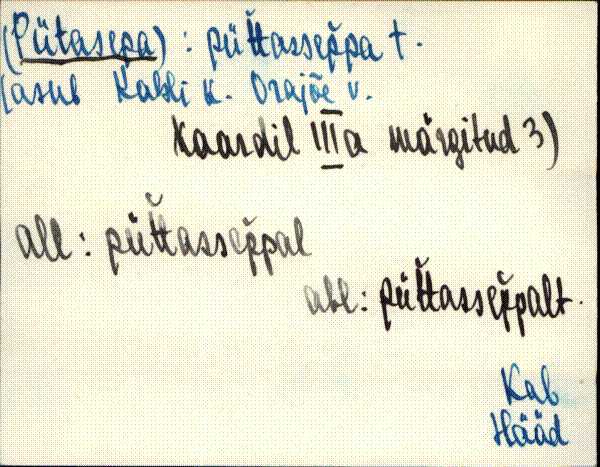 (Pütasepa) : püt̆tassep̆pa t.
(asub Kabli k. Orajõe v.
Kaardil IIIa märgitud 3)
all : püt̆tassep̆pal
abl : püt̆tassep̆palt.
Kab
Hääd